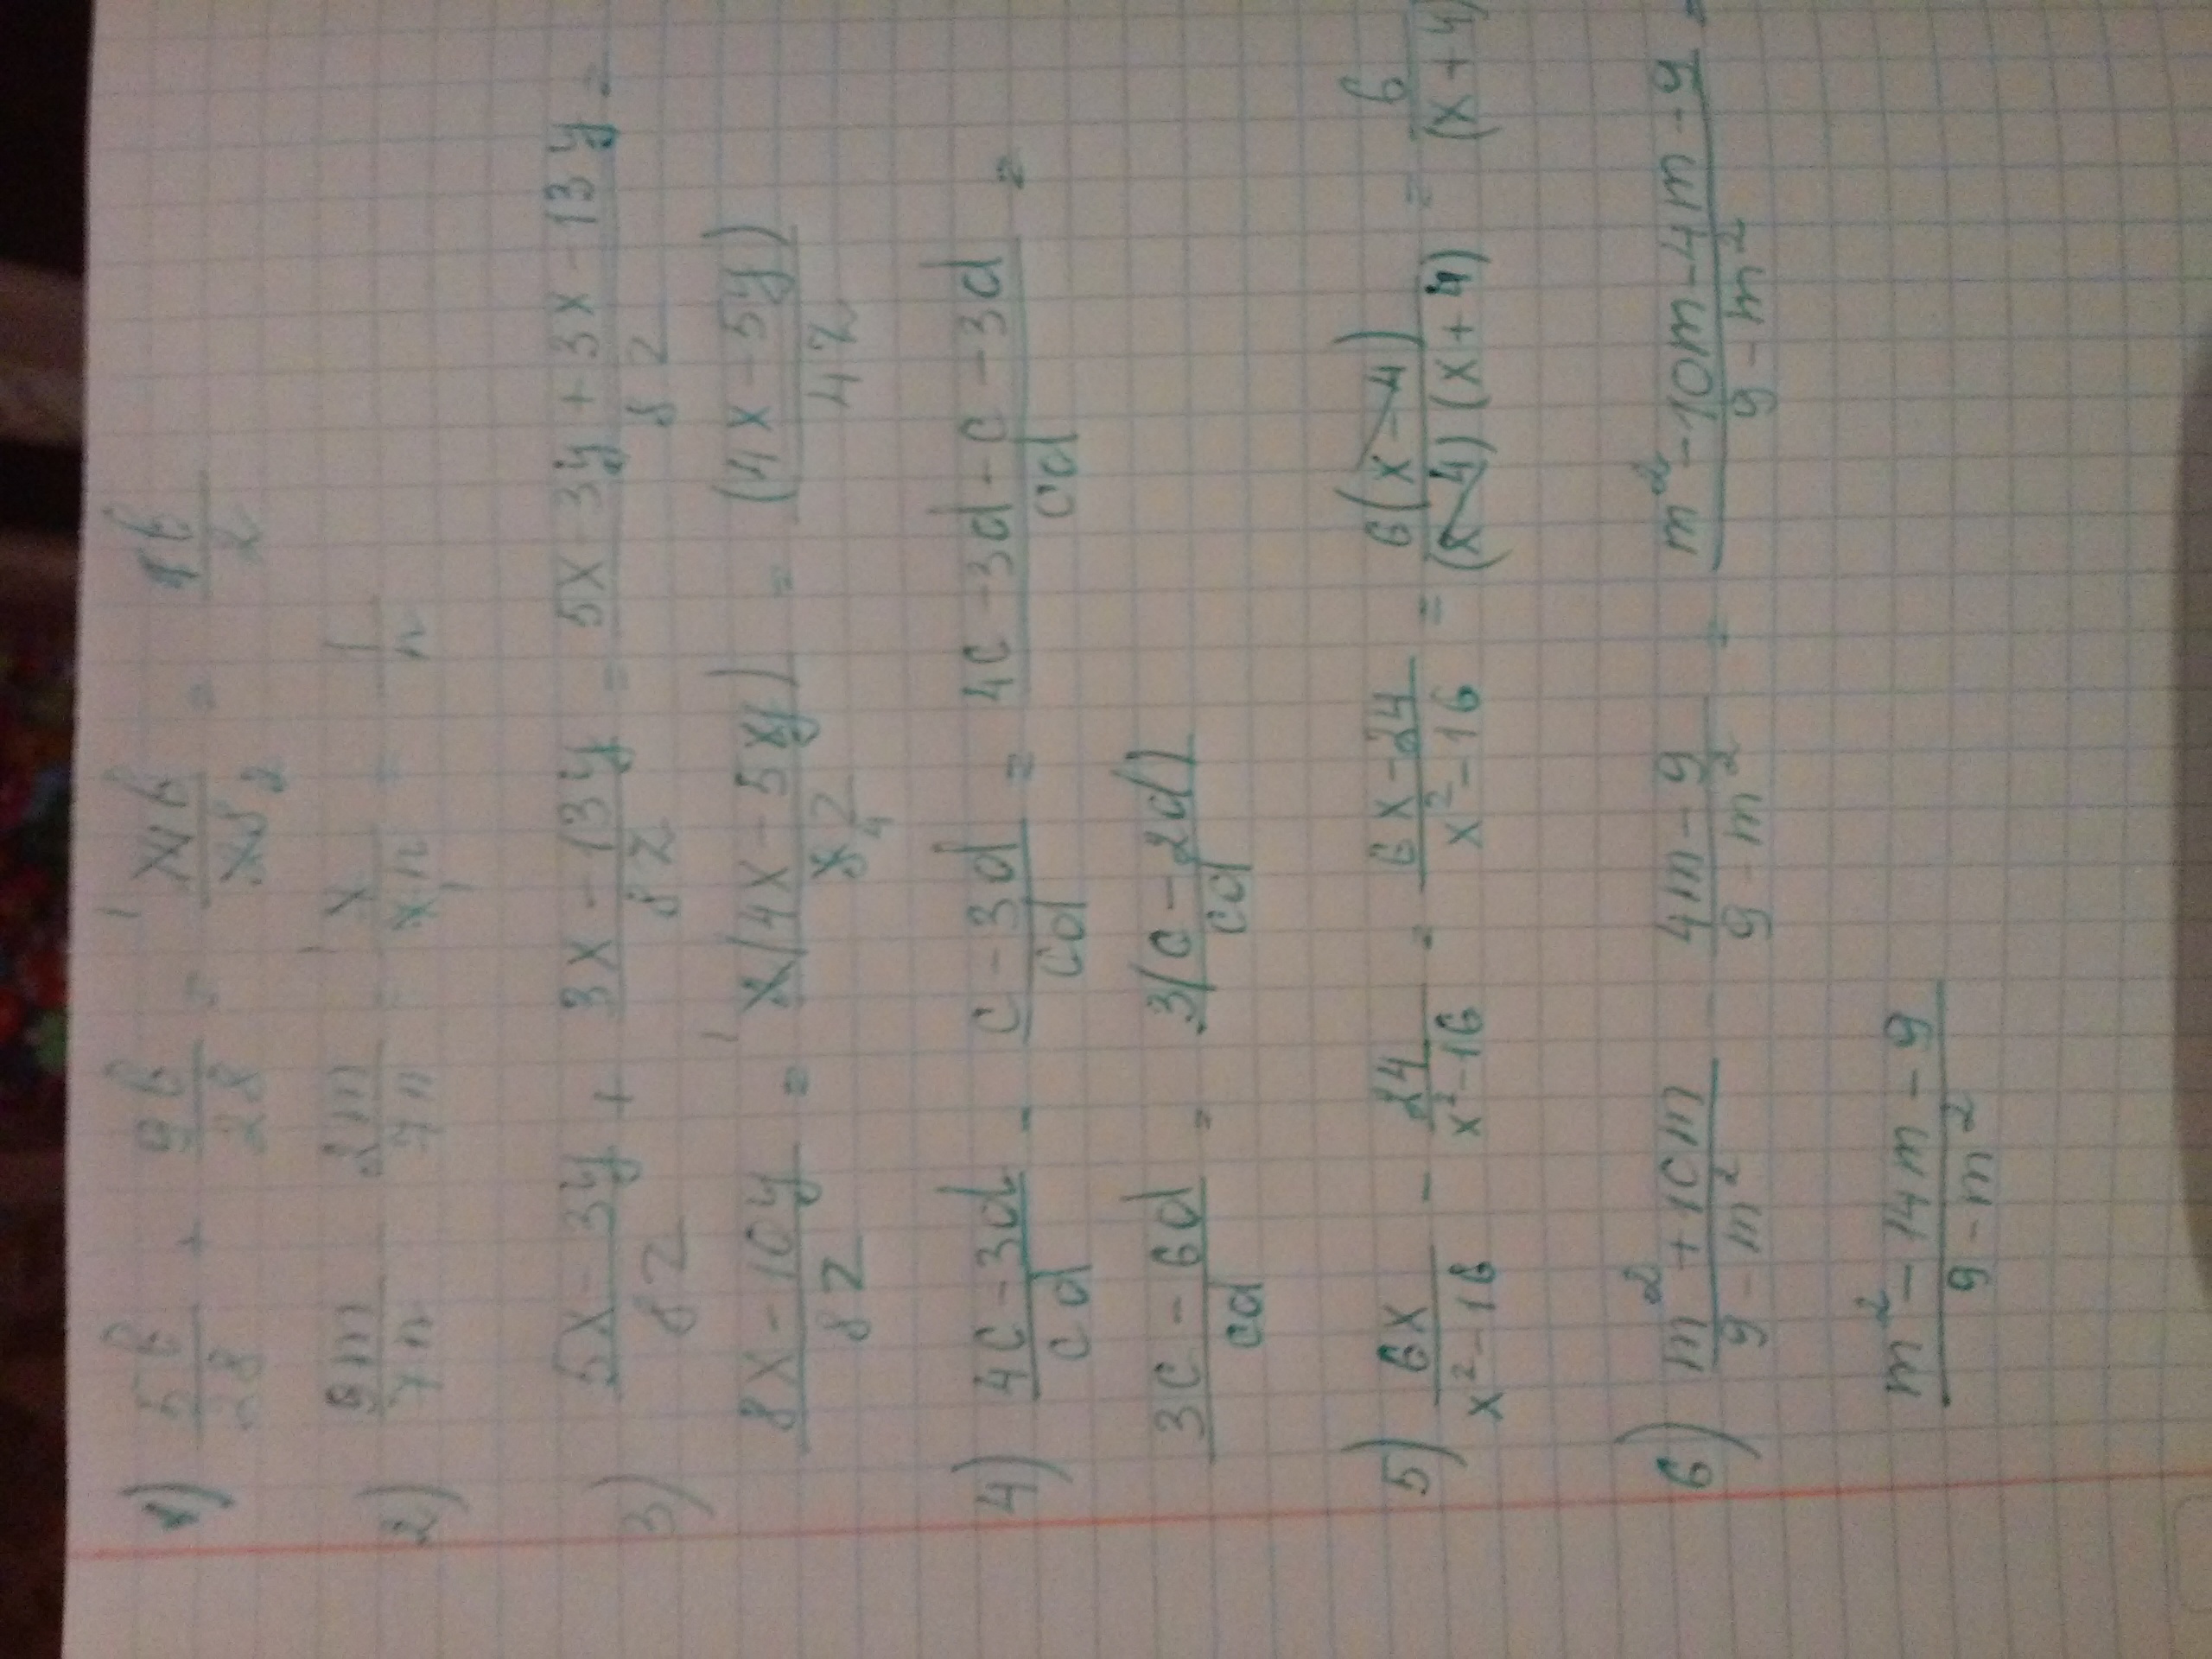 1) 5b/28 + 9b/28 = 14b/28 = 1b/2
2) 9m/7n 2m/7n = 7/7n = 1/n
3) 5x-3y/8z + 3x-13y/8z = 5x-3y+3x-13y/8z =
8x-10y/8z = 2(4x-5y)/8z = (4x-5y)/4z
4) 4c-3d/cd - c-3d/cd = 4c-3d-c-3d/cd =
3c-6d/cd = 3(c-2d)/cd
5) 6x/x²-16 - 24/x²-16 = 6x-24/x²-16 = 6(x-4)/(x-4)(x+4) = 6/(x+4)
6) m²+10m/9-m² 4m-9/9-m² = m²-10m-4m-9/9-m² =
m²-14m-9/9-m²